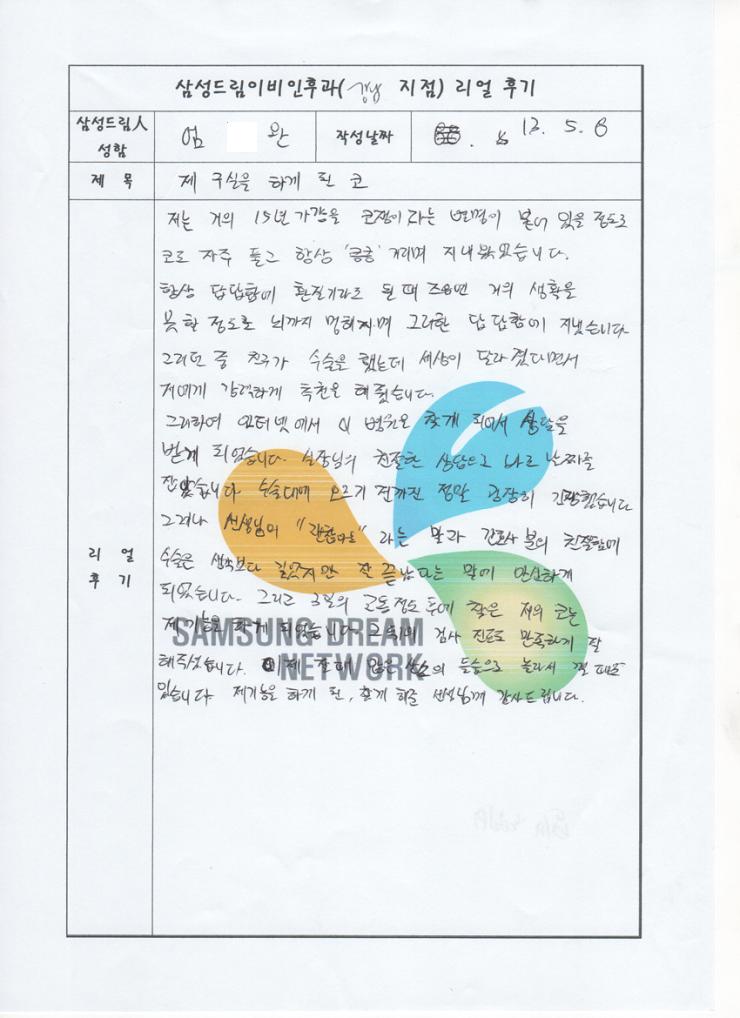 삼성드림이비인후과(강남 지점) 리얼 후기
삼성드림人 성함
엄 완
작성날짜
13. 5. 6
제 목
제 구실을 하게 된 코
리 얼 후 기
저는 거의 15년 가량을 코쟁이라는 별명이 붙어 있을 정도로
코로 자주 풀고 항상 '킁킁' 거리며 지내왔었습니다.
항상 답답함에 환절기라도 될 때 즈음엔 거의 생활을
못할 정도로 뇌까지 멍해지며 그러한 답답함에 지냈습니다
그러던 중 친구가 수술을 했는데 세상이 달라졌다면서
저에게 강력하게 추천을 해줬습니다.
그리하여 인터넷에서 이 병원을 찾게 되어서 상담을
받게 되었습니다. 실장님의 친절한 상담으로 바로 날짜를
잡았습니다 수술대에 오르기 전까진 정말 굉장히 긴장했습니다
그러나 선생님의 라는 말과 간호사 분의 친절함에
수술은 생각보다 길었지만 잘 끝났다는 말에 안심하게
되었습니다. 그리고 3일의 고통정도 후에 찾은 저의 코는
제기능을 하게 되었습니다 그 뒤의 검사 진료도 만족하게 잘
해주셨습니다. 이제 잘때 많은 산소의 들숨으로 놀라서 깰 때도
있습니다 제기능을 하게 된, 하게 해준 선생님께 감사드립니다.
SAMSUNG DREAM
NETWORK